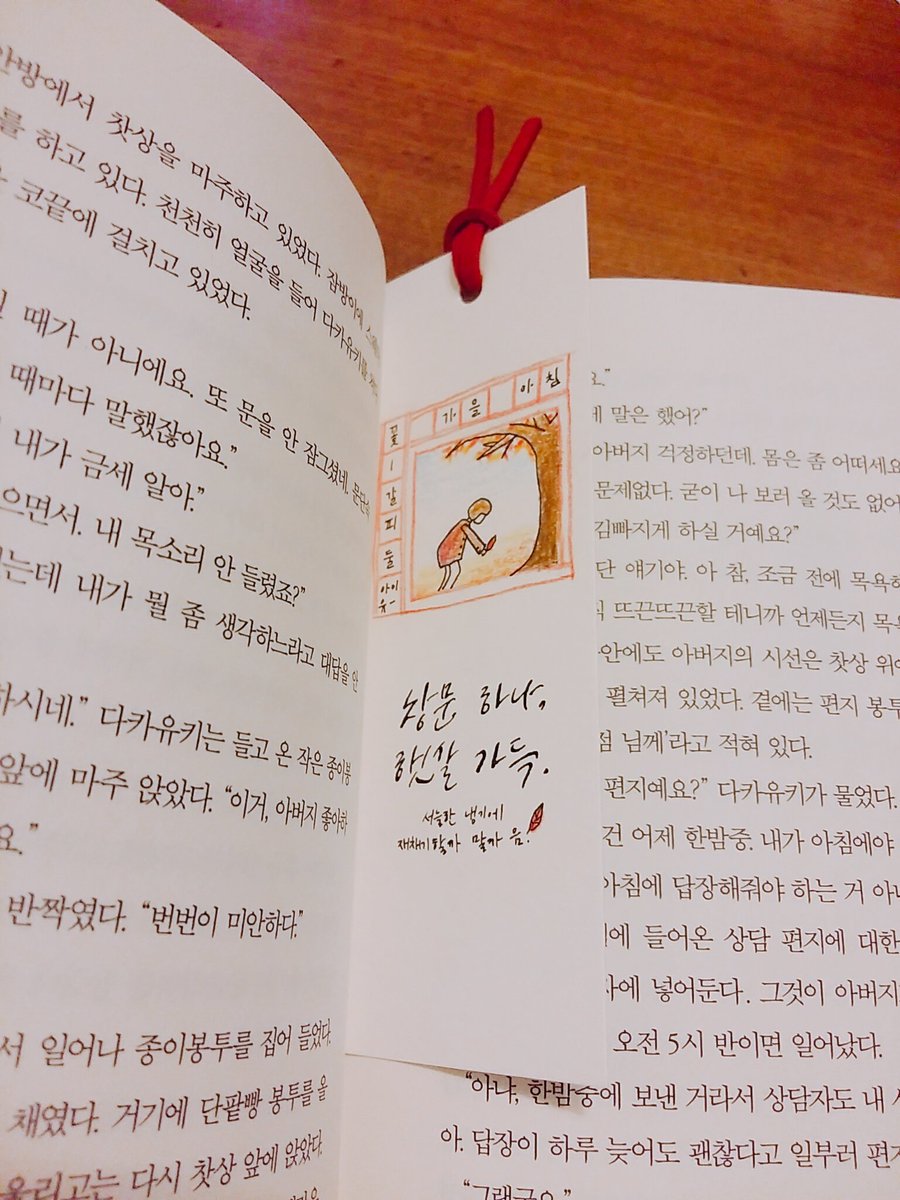 안방에서 찻상을 마주하고 있었다. 잠방이에
를 하고 있다. 천천히 얼굴을 들어 다카유키를
코끝에 걸치고 있었다.
때가 아니에요. 또 문을 안 잠그셨네. 문단속
때마다 말했잖아요.”
내가 금세 알아.”
으면서. 내 목소리 안 들렸죠?”
는데 내가 뭘 좀 생각하느라고 대답을 안
하시네.” 다카유키는 들고 온 작은 종이봉
앞에 마주 앉았다. “이거, 아버지 좋아하
요.”
반짝였다. “번번이 미안하다.”
서 일어나 종이봉투를 집어 들었다.
채였다. 거기에 단팥빵 봉투를 올
올리고는 다시 찻상 앞에 앉았다.
가을 아침
꽃
갈
피
둘
아이
유-
창문 하나,
햇살 가득.
서늘한 냉기에
재채기 할까 말까 음.
요.”
말은 했어?”
아버지 걱정하던데. 몸은 좀 어떠세요
문제없다. 굳이 나 보러 올 것도 없어
김빠지게 하실 거예요?”
단 얘기야. 아 참, 조금 전에 목욕하
뜨끈뜨끈할 테니까 언제든지 목욕
안에도 아버지의 시선은 찻상 위에
펼쳐져 있었다. 곁에는 편지 봉투
점 님께’라고 적혀 있다.
편지예요?” 다카유키가 물었다.
건 어제 한밤중. 내가 아침에야
아침에 답장해줘야 하는 거 아니
에 들어온 상담 편지에 대한
자에 넣어둔다. 그것이 아버지
오전 5시 반이면 일어났다.
“아냐, 한밤중에 보낸 거라서 상담자도 내
아. 답장이 하루 늦어도 괜찮다고 일부러 편지
“그래요.”